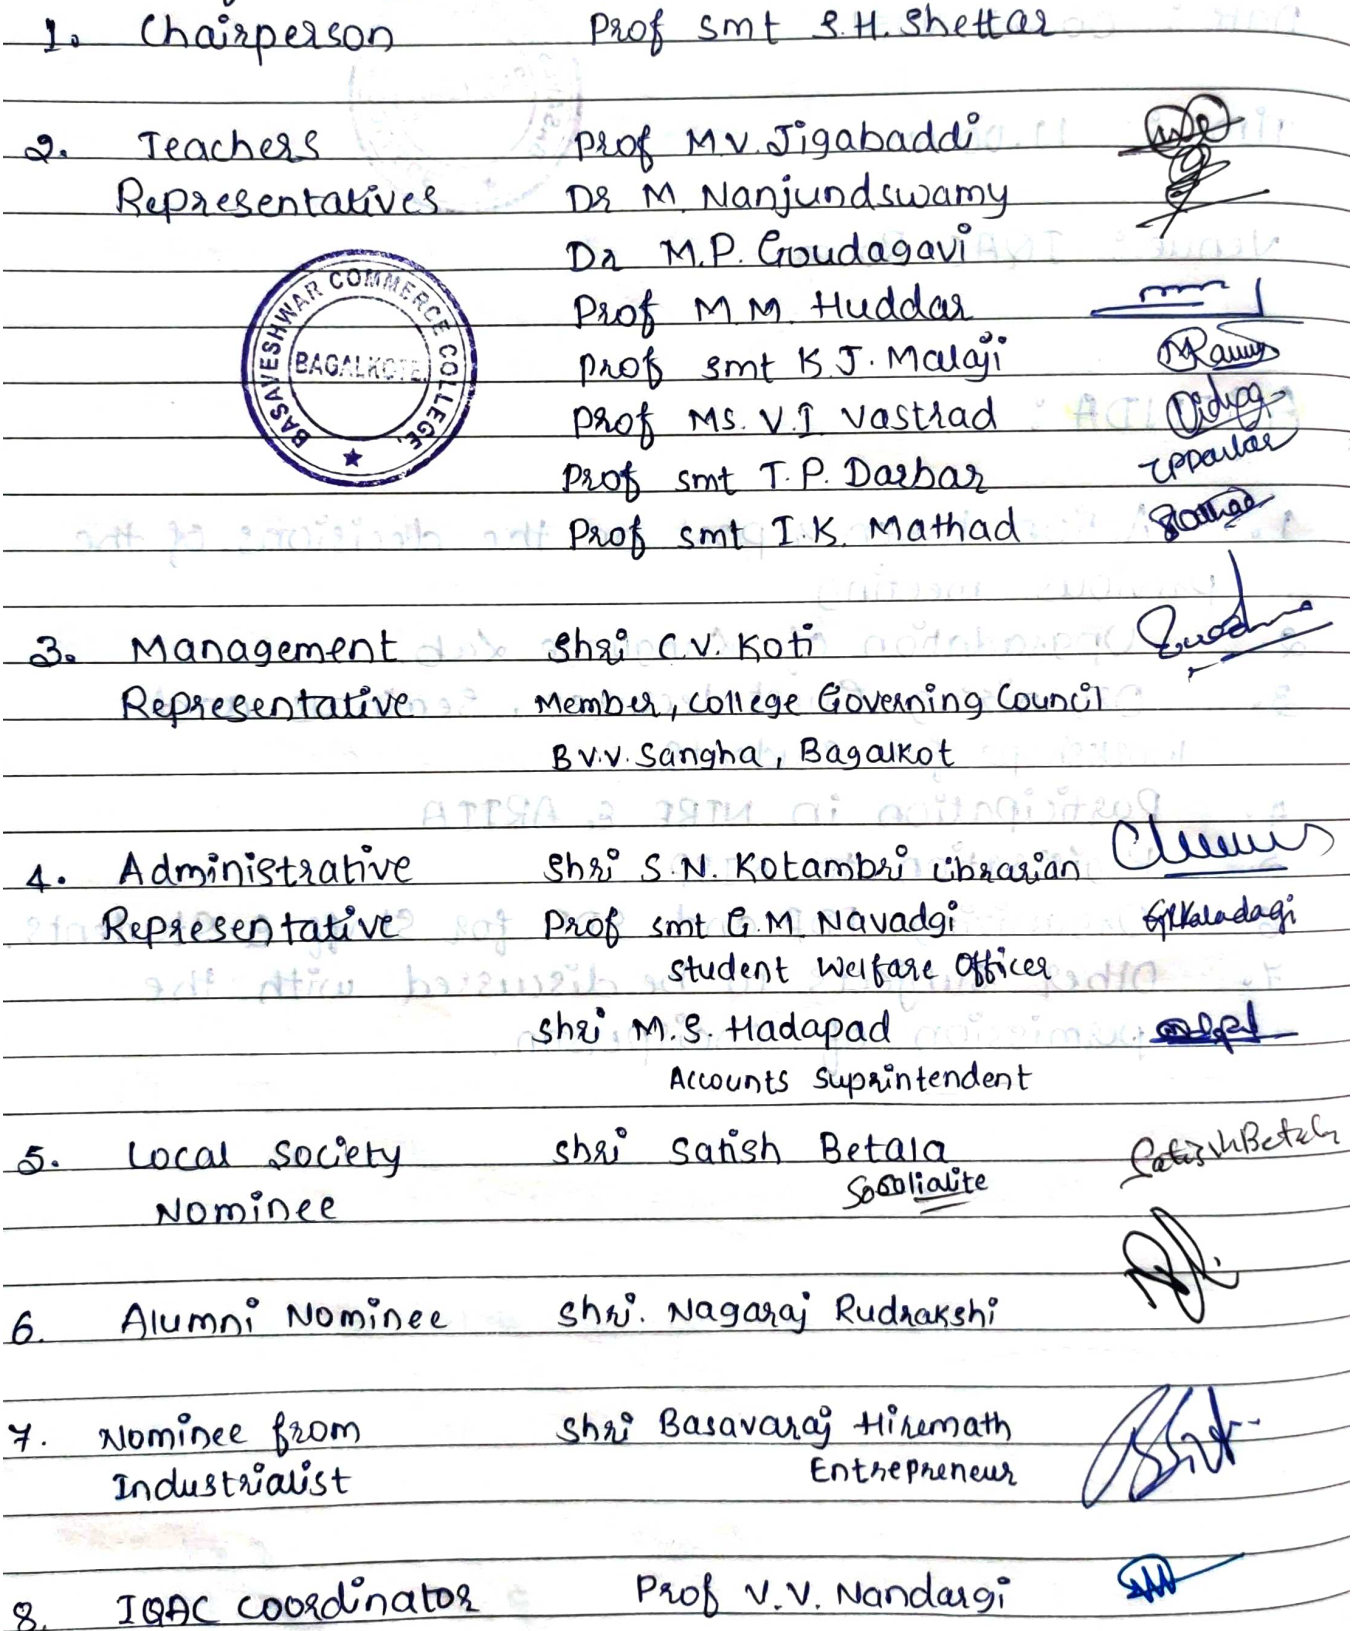 1. Chairperson Prof smt S.H. Shettar
2. Teachers Prof M.V. Jigabaddi
Representatives Dr M. Nanjundswamy
Dr M.P. Goudagavi
Prof M.M. Huddar
Prof smt K.J. Malaji
Prof Ms. V.I Vastrad
Prof smt T.P. Darbar
Prof smt I.K. Mathad
BASAVESHWAR COMMERCE COLLEGE,
BAGALKOTE
3. Management Shri C.V. Koti
Representative Member, College Governing Council
B.V.V. Sangha, Bagalkot
4. Administrative Shri S.N. Kotambri Librarian
Representative Prof smt G.M. Navadgi
Student Welfare Officer
Shri M.S. Hadapad
Accounts Suprintendent
5. Local Society Shri Satish Betala
Nominee
6. Alumni Nominee Shri. Nagaraj Rudrakshi
7. Nominee from Shri Basavaraj Hiremath
Industrialist Entrepreneur
8. IQAC Coordinator Prof V.V. Nandargi